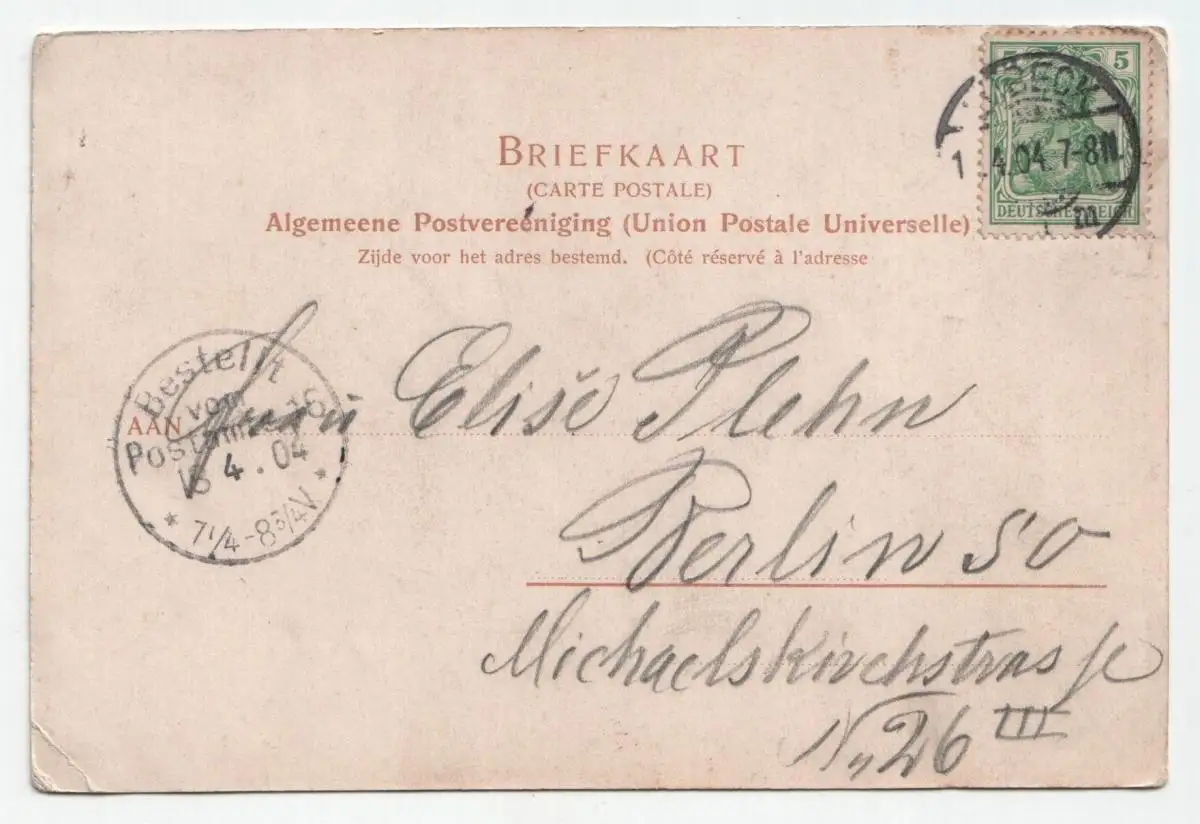 5 5
LÜBECK
1 .4.04.7-8N.
DEUTSCHES REICH
BRIEFKAART
(CARTE POSTALE)
Algemeene Postvereeniging (Union Postale Universelle)
Zijde voor het adres bestemd. (Côté réservé à l'adresse
Bestellt
vom
Postamte 16
4.04
7¼-8¾V
AAN
Frau Elise Plehn
Berlin SO
Michaelskirchstrasse
No 26 III